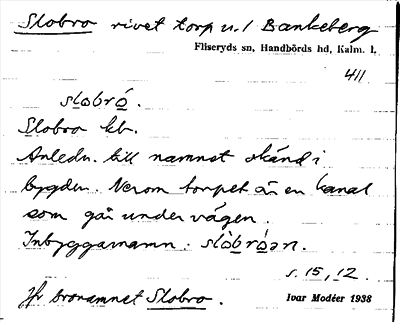 Slobro rivet torp u. l Bankeberg
Fliseryds sn, Handbörds hd, Kalm. l.
411
slobró.
Slobro kb.
Anledn. till namnet okänd i
bygden. Nerom torpet är en kanal
som går under vägen.
Inbyggarnamn: slòbróan.
s. 15, 12.
Jfr bronamnet Slobro.
Ivar Modéer 1938